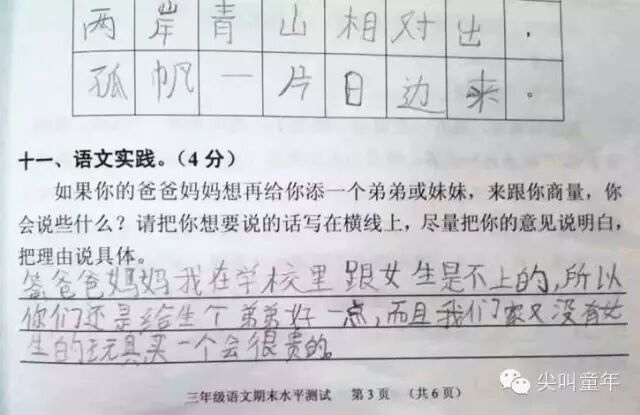 两岸青山相对出，
孤帆一片日边来。
十一、语文实践。（4分）
如果你的爸爸妈妈想再给你添一个弟弟或妹妹，来跟你商量，你
会说些什么？请把你想要说的话写在横线上，尽量把你的意见说明白，
把理由说具体。
答爸爸妈妈我在学校里跟女生是不上的，所以
你们还是给生个弟弟好一点，而且我们家又没有女
生的玩具买一个会很贵的。
三年级语文期末水平测试 第3页 （共6页）
尖叫童年